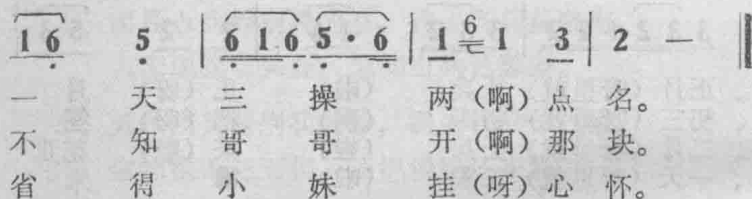 1 6 5 | 6 1 6 5 · 6 | 1 6 1 3 | 2 — ‖
一 天 三 操 两（啊）点 名。
不 知 哥 哥 开（啊）那 块。
省 得 小 妹 挂（呀）心 怀。